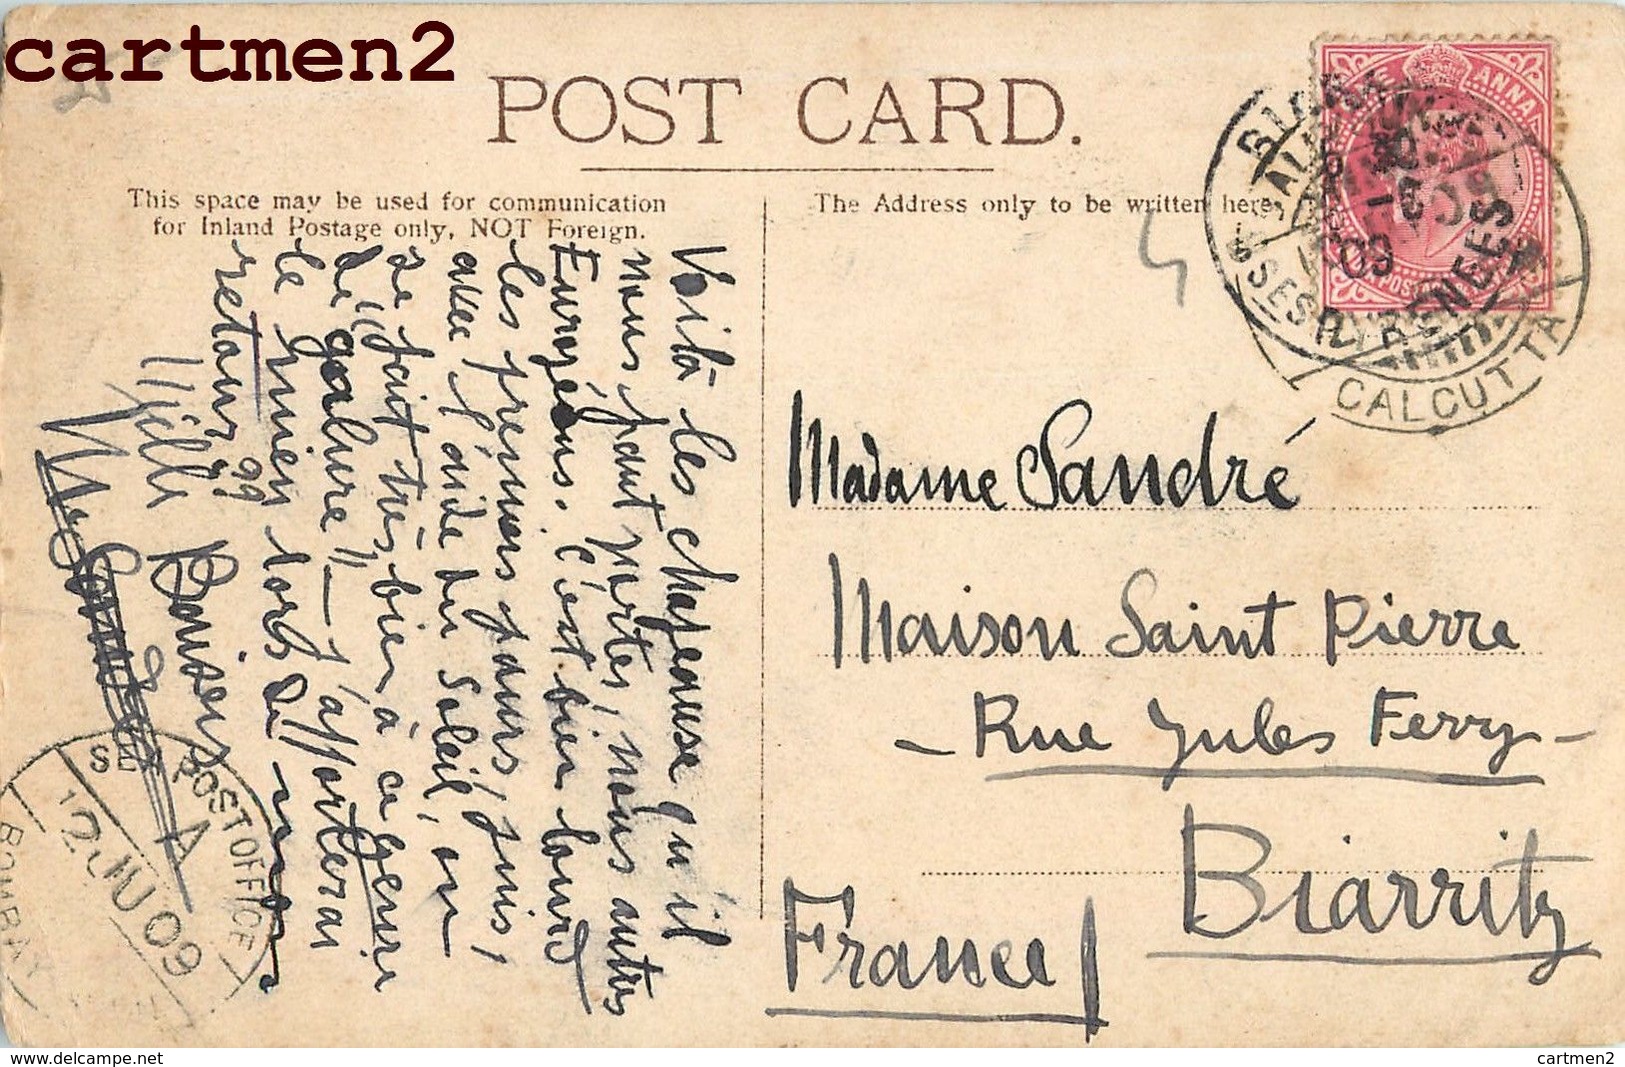 cartmen2
POST CARD.
This space may be used for communication
for Inland Postage only, NOT Foreign.
The Address only to be written here.
Voilà les chapeaux qu'il
nous faut porter, nous autres
Européens. C'est bien lourd
les premiers jours, puis,
avec l'aide du Soleil, on
se fait très bien à ce genre
de "galure" — J'apporterai
le mien lors de mon
retour
Mille Baisers
Madame Sandré
Maison Saint Pierre
- Rue Jules Ferry -
Biarritz
France
ANNA
CALCUTTA
09
PYRENEES
SEA POST OFFICE
A
12 JU 09
BOMBAY
www.delcampe.net
cartmen2